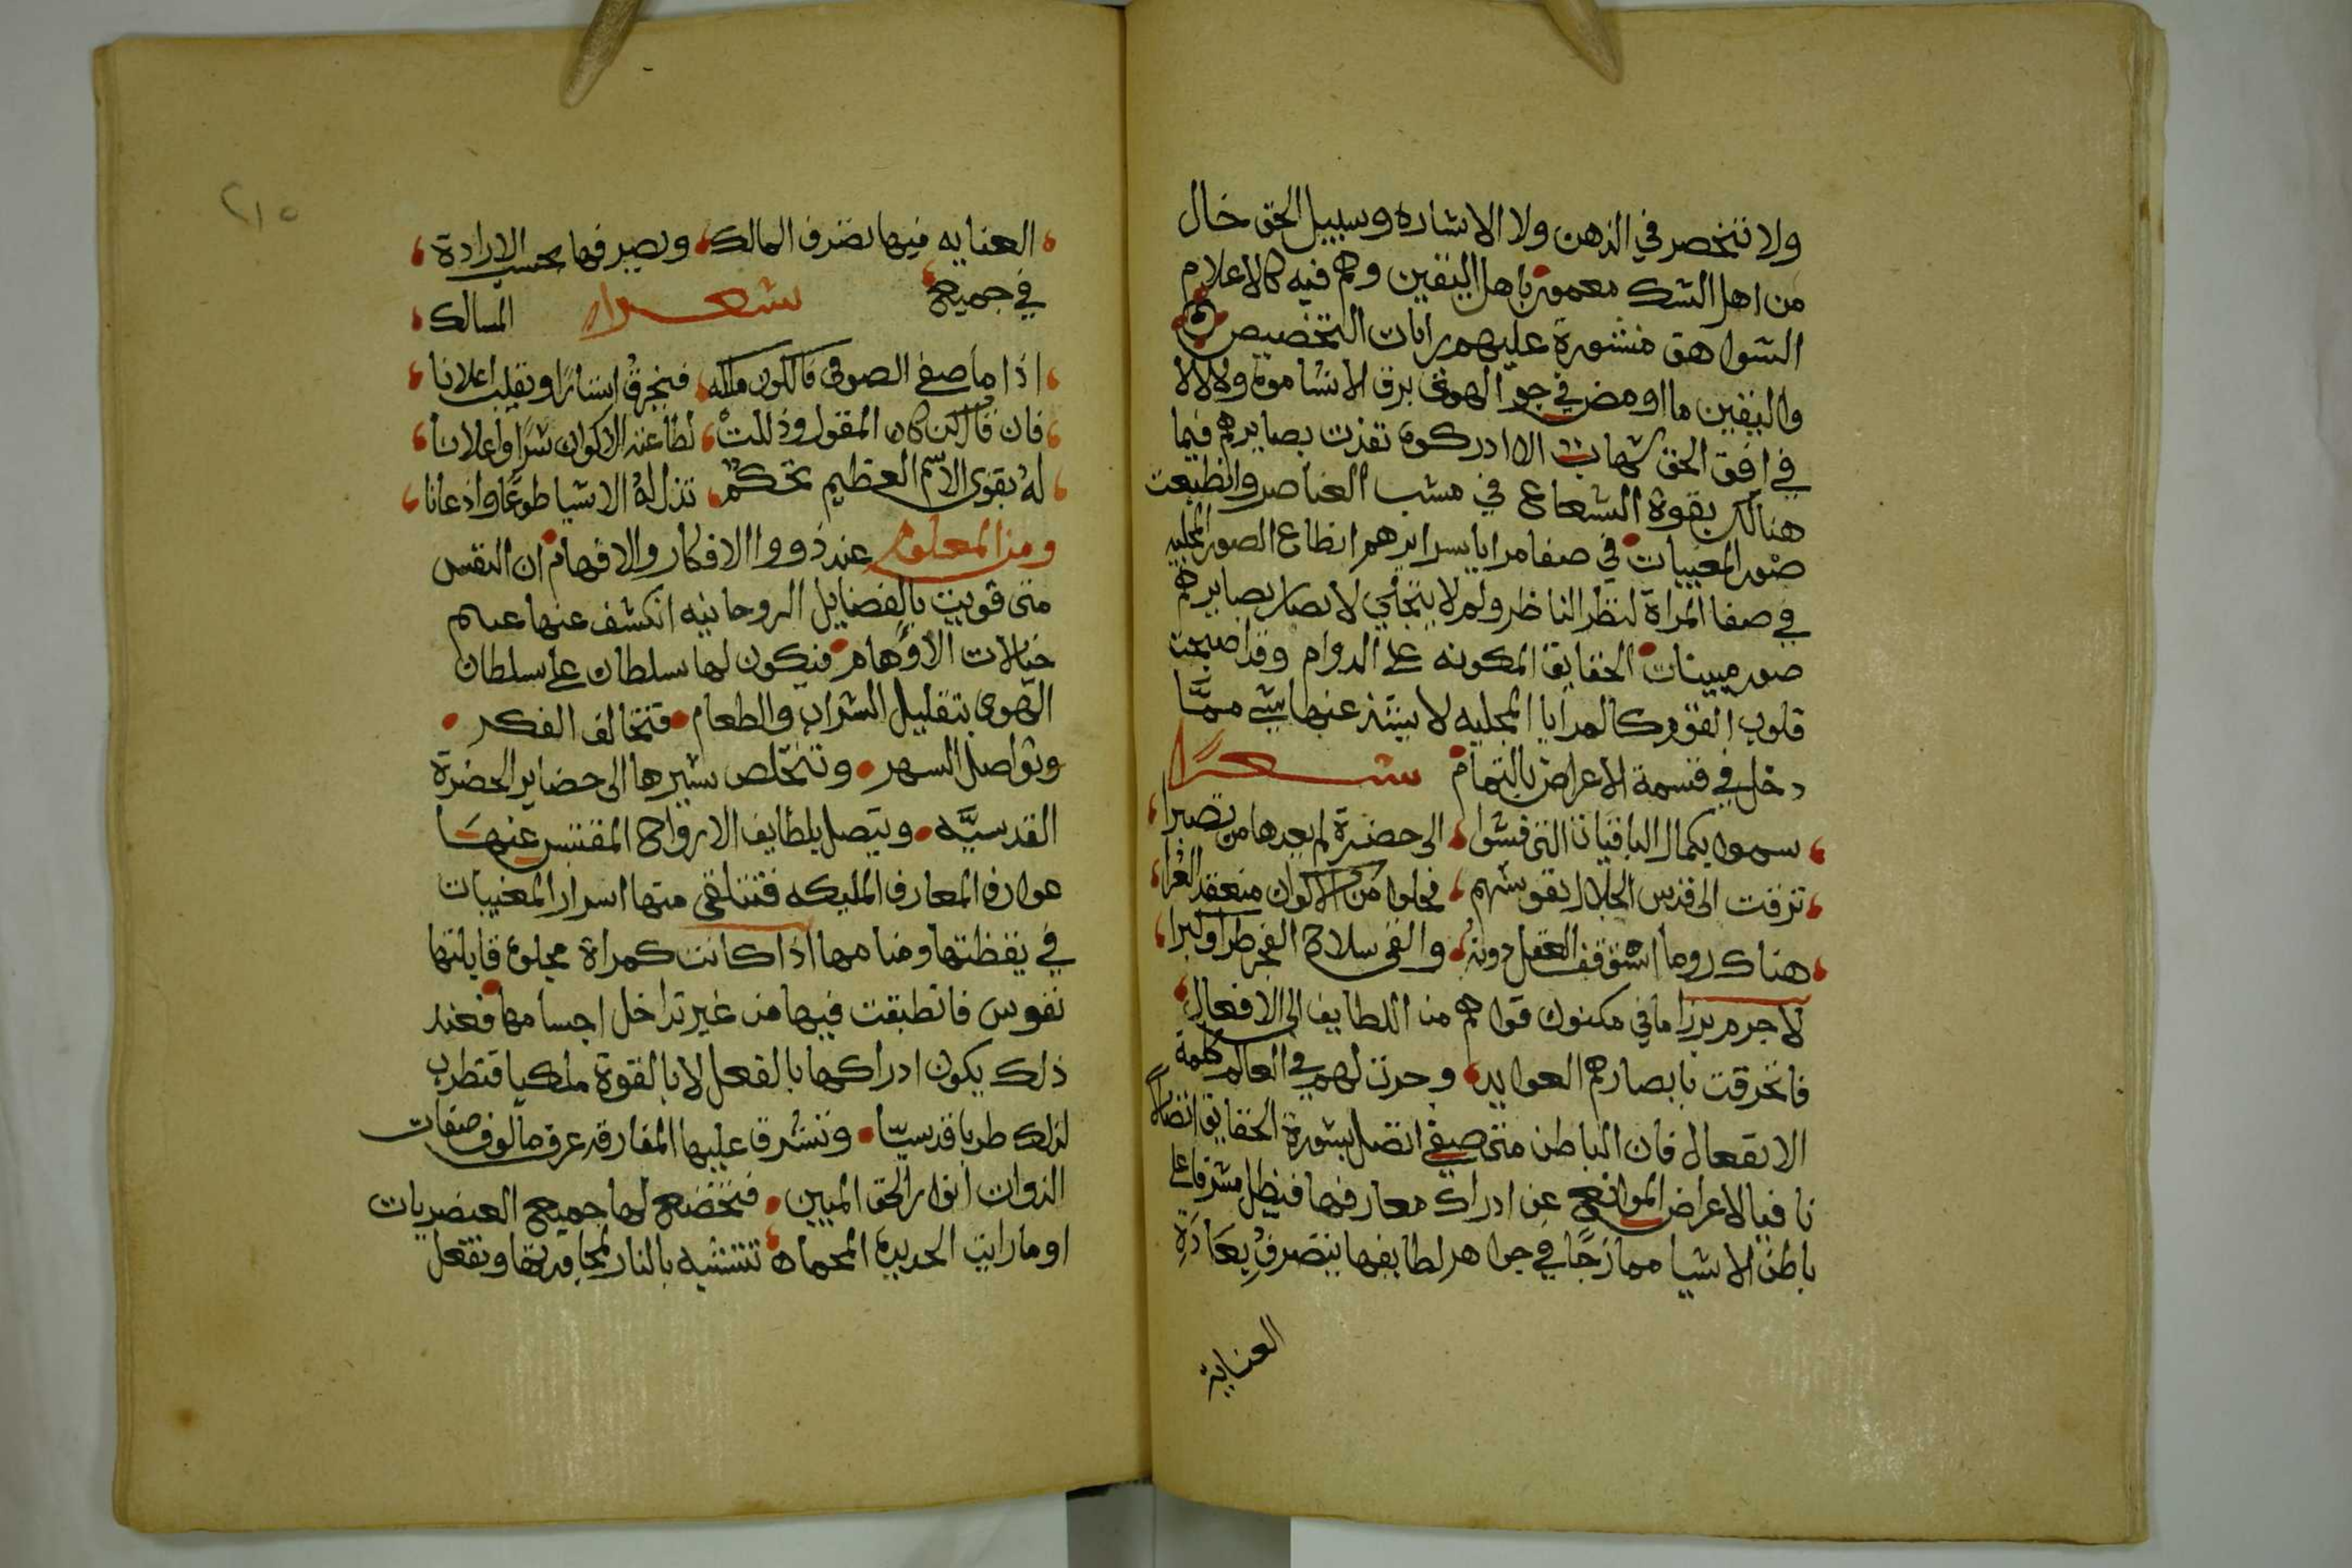 ولا تنحصر في الذهن ولا الاشاره وسبيل الحق خال
من اهل الشك معمورة باهل اليقين وهم فيه كالاعلام
الشواهق منشورة عليهم رايات التخصيص
واليقين ما اومض في جو الهوى برق الا شاموه ولا لالا
في افق الحق شهاب الا ادركوه نفذت بصايرهم فيما
هنالك بقوة الشعاع في العناصر وانطبعت
صور المغيبات في صفا مرايا سرايرهم انطباع الصور المجليه
في صفا المراة لنظر الناظر ولم لا يتجلي لابصار بصايرهم
صور مبينات الحقايق المكونه على الدوام وقد اصبحت
قلوب القوم كالمرايا المجليه لا يشذ عنها شي ممَّا
دخل في قسمة الاعراض بالتمام شعرًا
سموا بكمال الباقيات التي فشوا الى حضرة لم يعدها من تصبرا
ترقت الى قدس الجلال نفوسهم فحلوا من الاكوان منعقد العرا
هناك روما العقل دونه والقى سلاح الفخر طرا وكبرا
لا جرم برز ما في مكنون قواهم من اللطايف الى الافعال
فانخرقت بابصارهم العوايد وجرت لهم في العالم كلمة
الانفعال فان الباطن متى صفي اتصل بسورة الحقايق اتصالًا
نافيا لاعراض الموانع عن ادراك معارفها فيظل مشرفا على
باطن الاشيا ممازجًا في جواهر لطايفها يتصرف بعادَةِ
العناية
٢١٥
العنايه فيها تصرف المالك ويصرفها بحسب الارادة
في جميع شعرا المسالك
اذا ما صفى الصوفي فالكون ملكه فيخرق اسرارا ويقلب اعلانا
فان قال كن كان المقول وذللت لطاعته الاكوان سرًا واعلانا
له بقوى الاسم العظيم تحكم تذل له الاشيا طوعًا واذعانا
ومن المعلوم عند ذووا الافكار والافهام ان النفس
متى قويت بالفضايل الروحانيه انكشف عنها
خيالات الاوهام فيكون لها سلطان على سلطان
الهوى بتقليل الشراب والطعام فتخالف الفكر
وتواصل السهر وتتخلص بسيرها الى حضاير الحضرة
القدسيَّه ويتصل بلطايف الارواح المقتبس عنها
عوارف المعارف المليكه فتتلقى منها اسرار المغيبات
في يقظتها ومنامها اذا كانت كمراة مجلوة قابلتها
نفوس فانطبقت فيها من غير تداخل اجسامها فعند
ذلك يكون ادراكها بالفعل لا بالقوة ملكيا فتطرب
لذلك طربا قدسيّا وتشرق عليها المفارقه عرف مالوف صفات
الذوات انوار الحق المبين فتخضع لها جميع العنصريات
اوما رايت الحديدة المحماه تتشبه بالنار لمجاورتها وتفعل